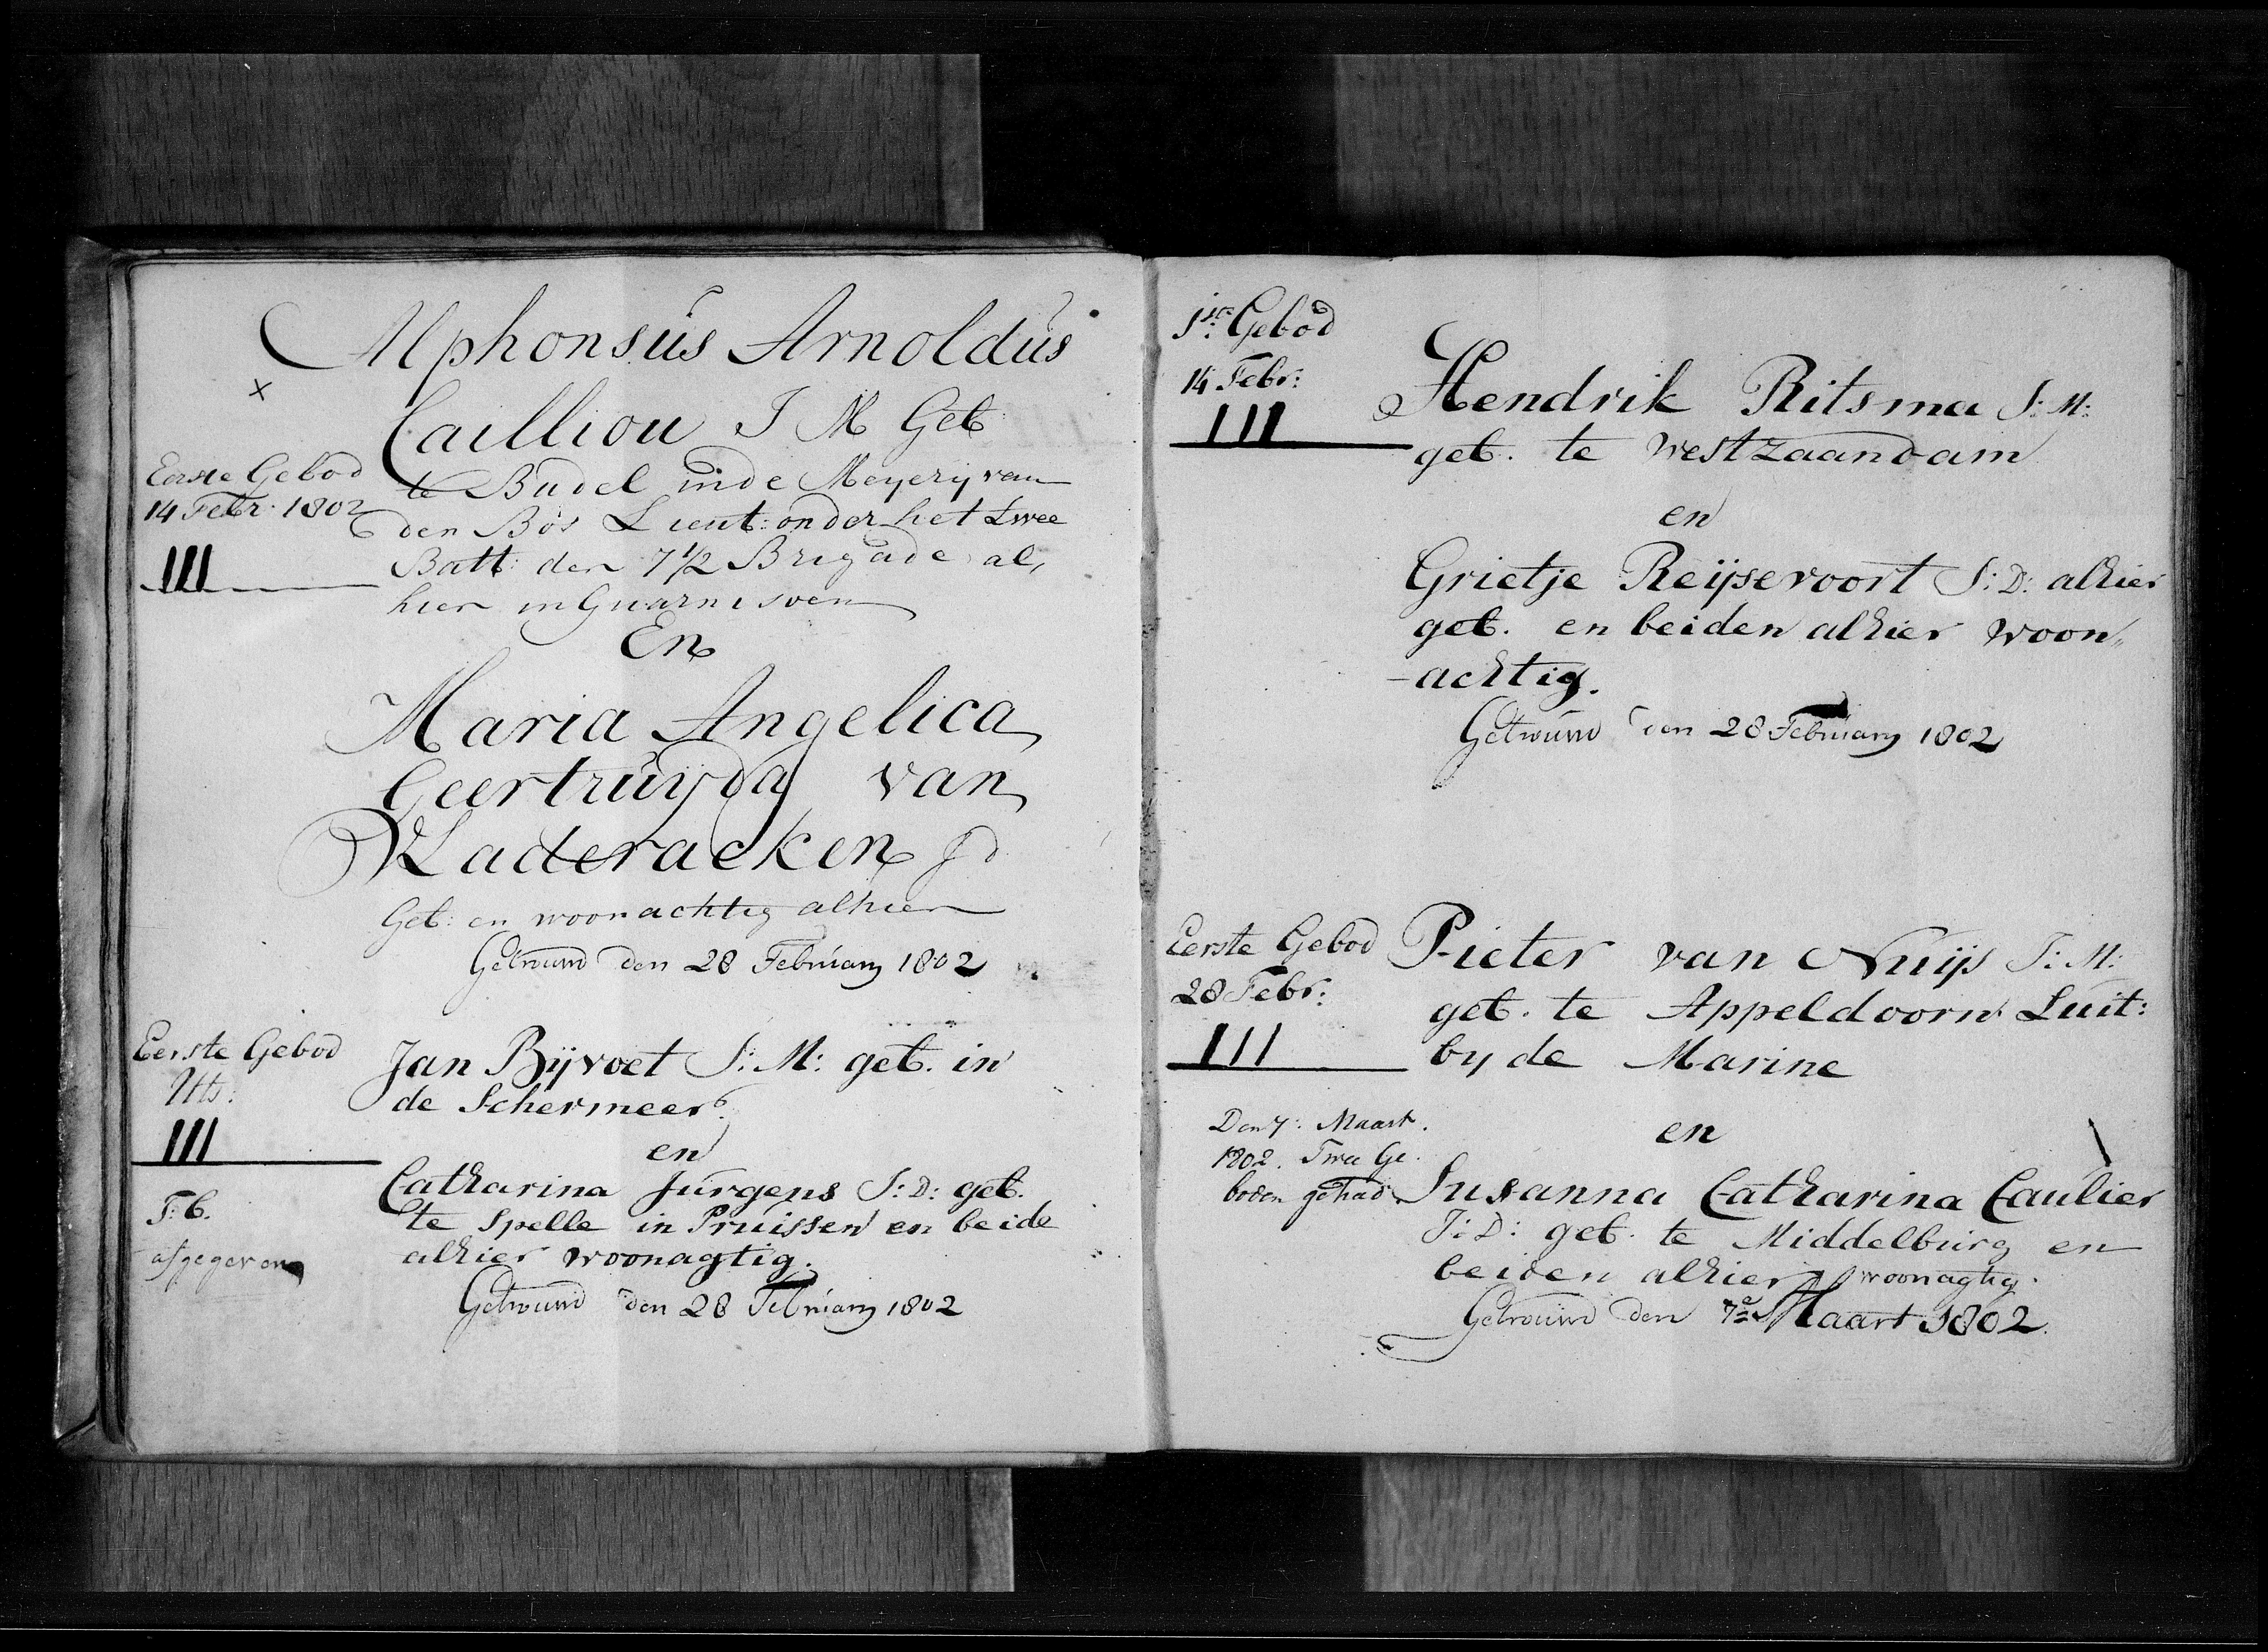 Alphonsus Arnoldus
x
Cailliou J M Geb
Eerste Gebod
14 Febr: 1802
III
te Budel inde Meyerij van
den Bos Lieut: onder het twee
Batt: den 7 1/2 Brigade al,
hier in Guarnisoen
En
Maria Angelica
Geertruijda van
Kaderacken J d
Geb: en woonachtig alhier
Getrouwd den 28 February 1802
Eerste Gebod
Uts:
III
T: b.
afgegeven
Jan Bijvoet J: M: geb. in
de Schermeer
en
Catharina Jurgens J: D: geb.
te Spelle in Pruissen en beide
alhier woonagtig.
Getrouwd den 28 February 1802
1ste Gebod
14 Febr:
III
Hendrik Ritsma J: M:
geb. te Westzaandam
en
Grietje Reijsevoort J: D: alhier
geb. en beiden alhier woon„
-achtig.
Getrouwd den 28 February 1802
Eerste Gebod
28 Febr:
III
Den 7: Maart.
1802. Twee Ge.
boden gehad
Pieter van Nuijs J: M:
geb. te Appeldoorn Luit:
by de Marine
en
Susanna Catharina Caulier
J: D: geb. te Middelburg en
beiden alhier woonagtig.
Getrouwd den 7de Maart 1802.